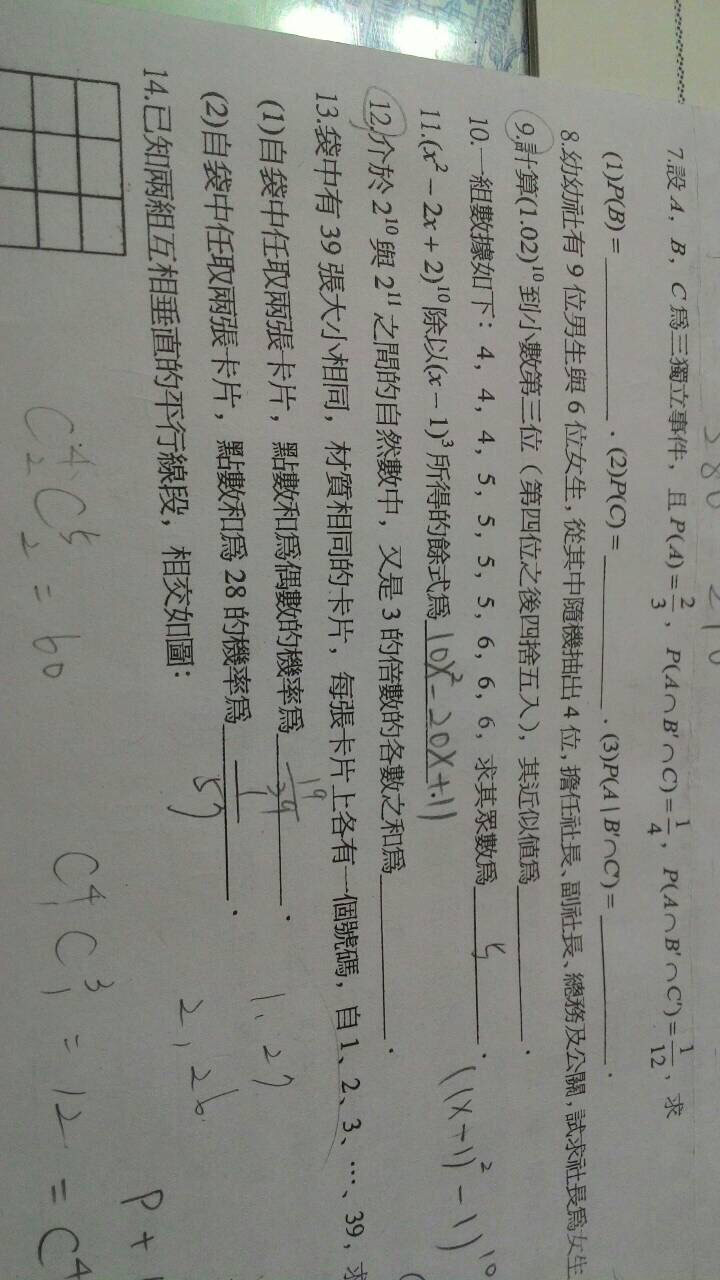 7.設 A，B，C 為三獨立事件，且 P(A)=2/3，P(A∩B'∩C)=1/4，P(A∩B'∩C')=1/12，求
(1)P(B)= ________．(2)P(C)= ________．(3)P(A∣B'∩C)= ________．
8.幼幼社有 9 位男生與 6 位女生，從其中隨機抽出 4 位，擔任社長、副社長、總務及公關，試求社長為女生
9.計算(1.02)^10 到小數第三位（第四位之後四捨五入），其近似值為________．
10.一組數據如下：4，4，4，5，5，5，5，6，6，6，求其眾數為 5 ．
11.(x²－2x＋2)^10 除以(x－1)³ 所得的餘式為 10x²-20x+11
((x+1)²-1)^10
12.介於 2^10 與 2^11 之間的自然數中，又是 3 的倍數的各數之和為________．
13.袋中有 39 張大小相同，材質相同的卡片，每張卡片上各有一個號碼，自 1、2、3、…、39，求
(1)自袋中任取兩張卡片，點數和為偶數的機率為 19/39 ．
1, 27
(2)自袋中任取兩張卡片，點數和為 28 的機率為 1/57 ．
2, 26
14.已知兩組互相垂直的平行線段，相交如圖：
P+
C⁴₂C⁵₂=60
C⁴₁C³₁=12=C⁴